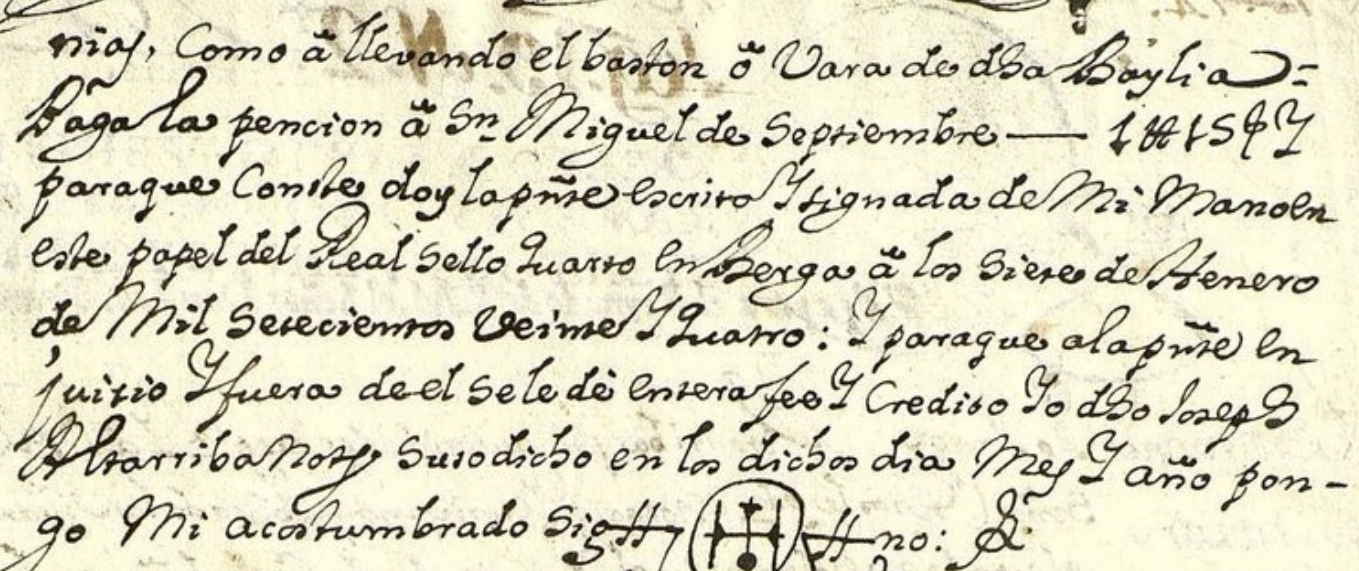 nias, Como â llevando el baston ô Vara de dha Baylia =
Paga la pencion â Sn. Miguel de Septiembre —
paraque Conste doy la pñte escrito Y signada de Mi Mano en
este papel del Real Sello Quarto en Berga â los Siete de Henero
de Mil Setecientos Veinte Y Quatro: Y paraque a la pñte en
juisio Y fuera de el se le dè entera fee Y Credito Yo dho Joseph
Altarriba Noty Susodicho en los dichos dia Mes Y año pon-
go Mi acostumbrado Sig no: &